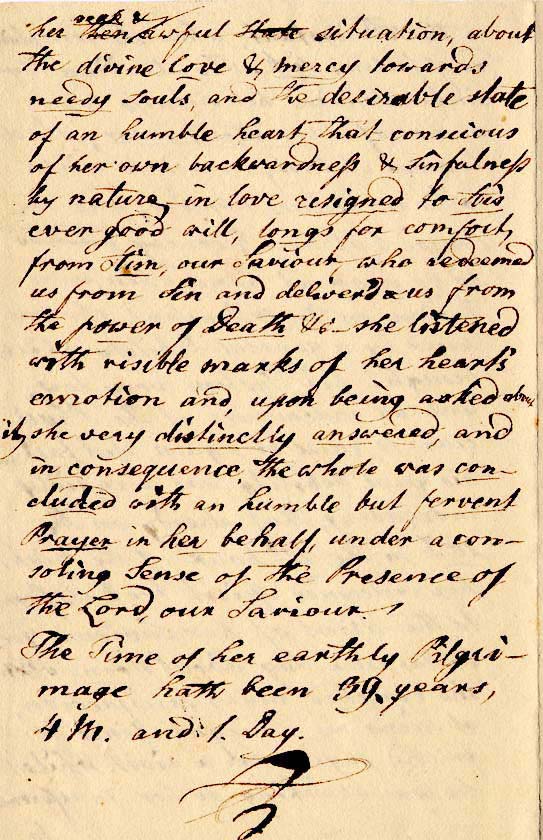 weak &
her then awful state situation, about
the divine love & mercy towards
needy souls, and the desirable state
of an humble heart, that conscious
of her own backwardness & sinfulness
by nature, in love resigned to His
ever good will, longs for comfort,
from Him, our Saviour, who redeemed
us from Sin and deliver'd us from
the power of Death &c - she listened
with visible marks of her heart's
emotion and, upon being asked about
it, she very distinctly answered, and
in consequence the whole was con-
cluded with an humble but fervent
Prayer in her behalf, under a con-
soling Sense of the Presence of
the Lord, our Saviour.
The Time of her earthly Pilgri-
mage hath been 39 years,
4 M. and 1. Day.